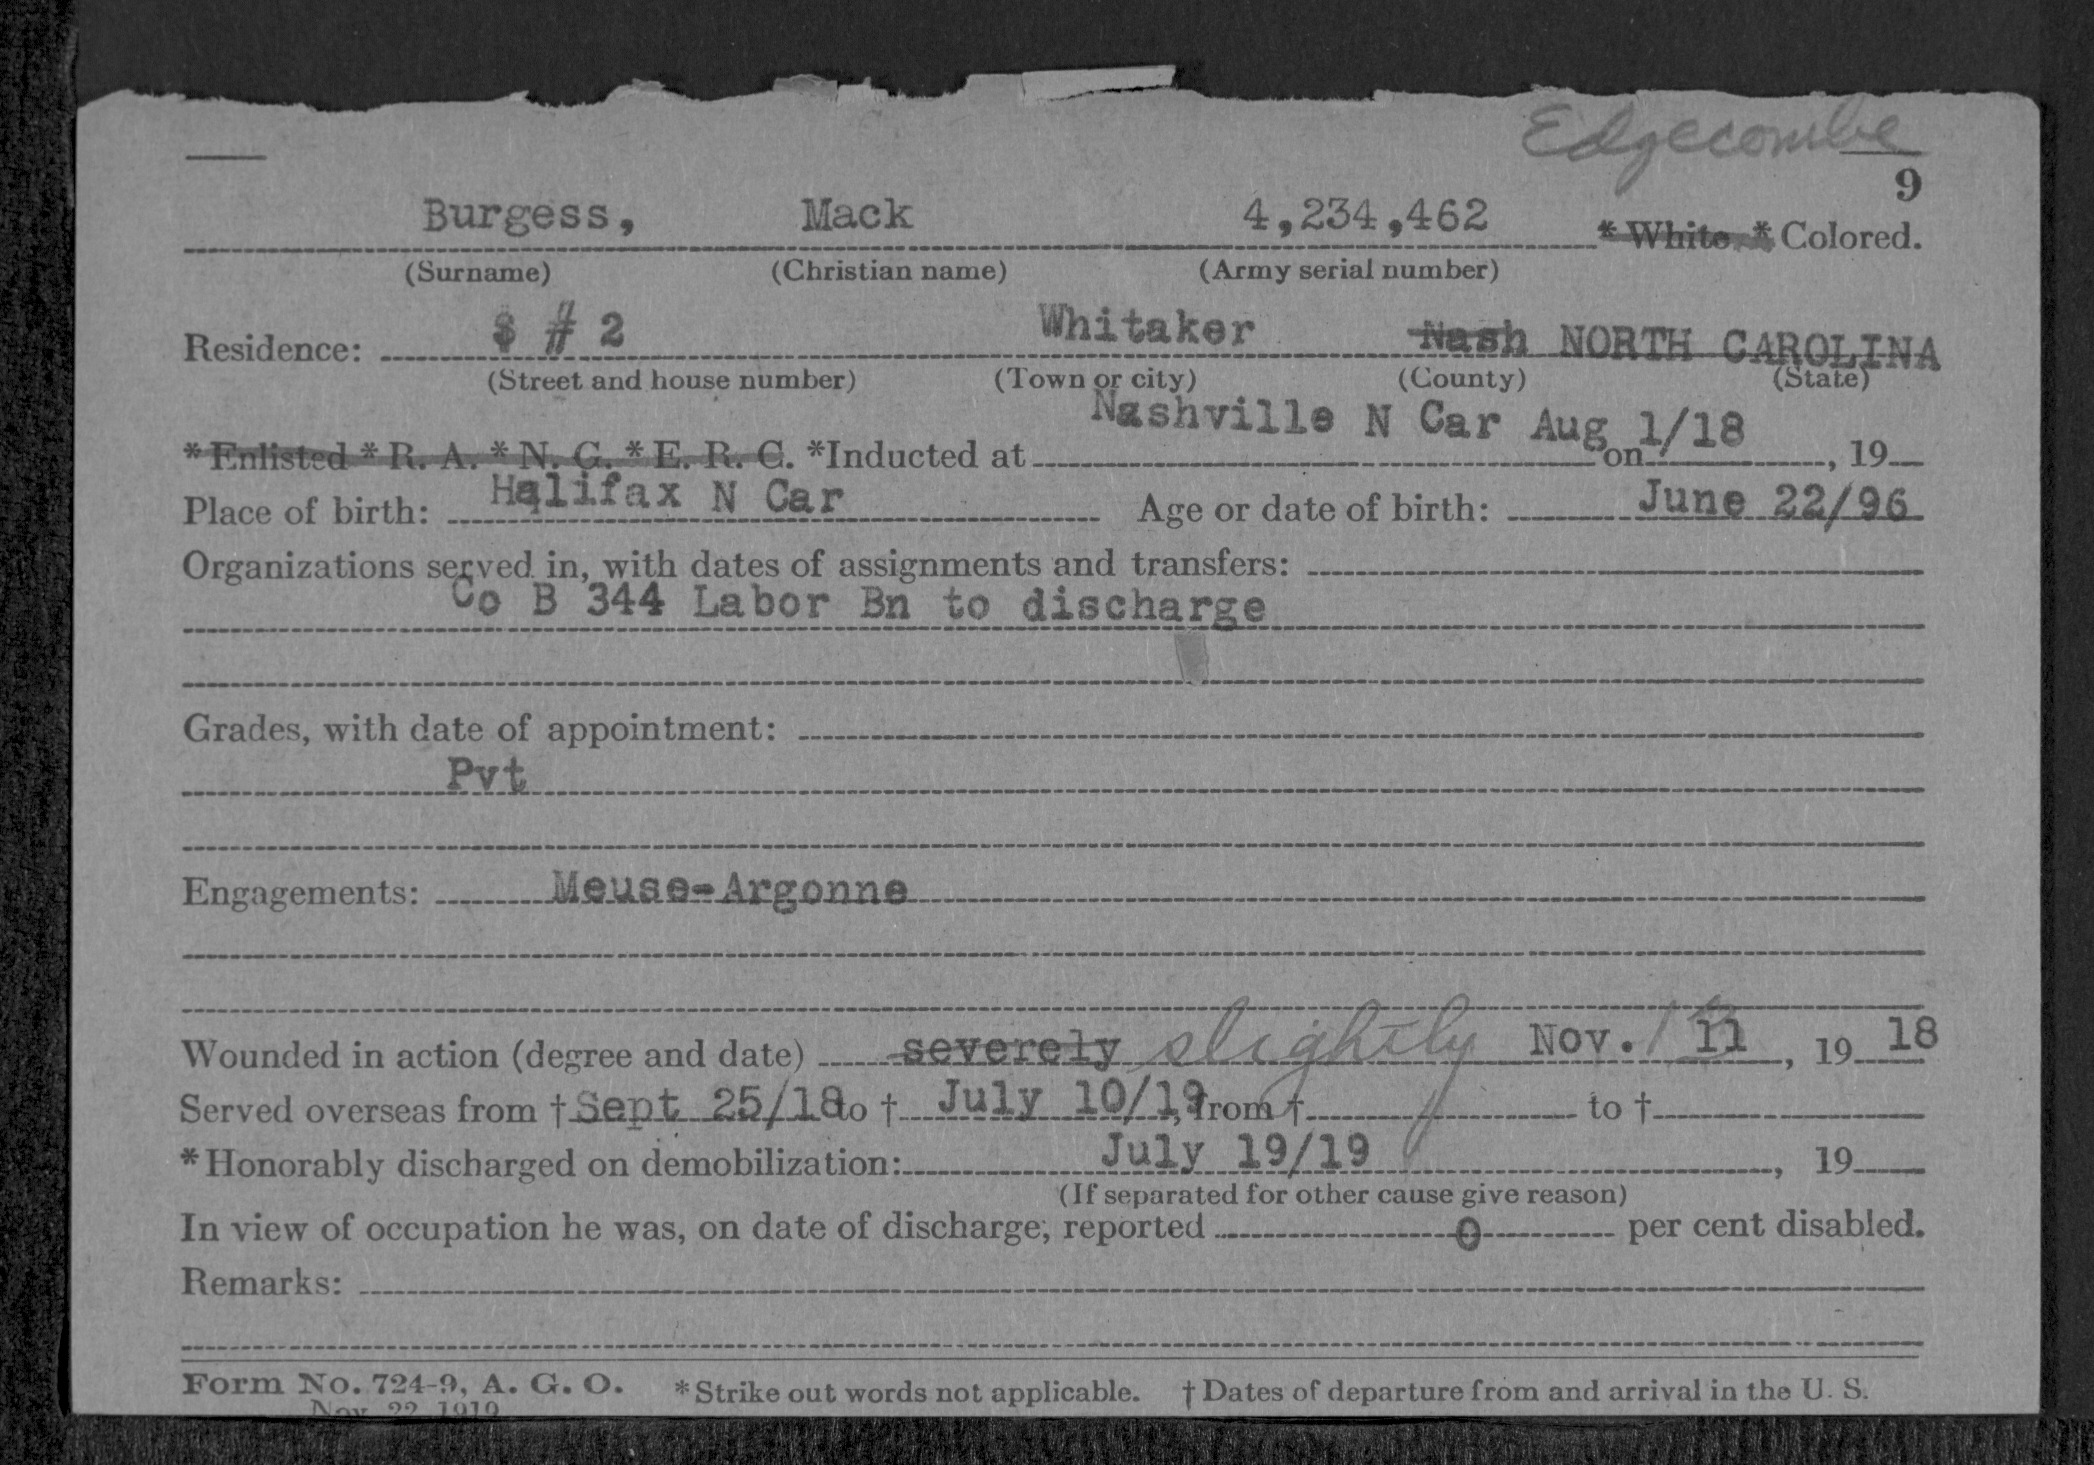 Edgecombe
9
Burgess, Mack 4,234,462 * White * Colored.
(Surname) (Christian name) (Army serial number)
Residence: $ # 2 Whitaker Nash NORTH CAROLINA
(Street and house number) (Town or city) (County) (State)
Nashville N Car Aug 1/18
* Enlisted * R. A. * N. G. * E. R. C. *Inducted at on , 19
Place of birth: Halifax N Car Age or date of birth: June 22/96
Organizations served in, with dates of assignments and transfers:
Co B 344 Labor Bn to discharge
Grades, with date of appointment:
Pvt
Engagements: Meuse-Argonne
Wounded in action (degree and date) severely slightly Nov. 11 , 19 18
Served overseas from † Sept 25/18 to † July 10/19, from † to †
* Honorably discharged on demobilization: July 19/19 , 19
(If separated for other cause give reason)
In view of occupation he was, on date of discharge, reported 0 per cent disabled.
Remarks:
Form No. 724-9, A. G. O. * Strike out words not applicable. † Dates of departure from and arrival in the U. S.
Nov. 22, 1919